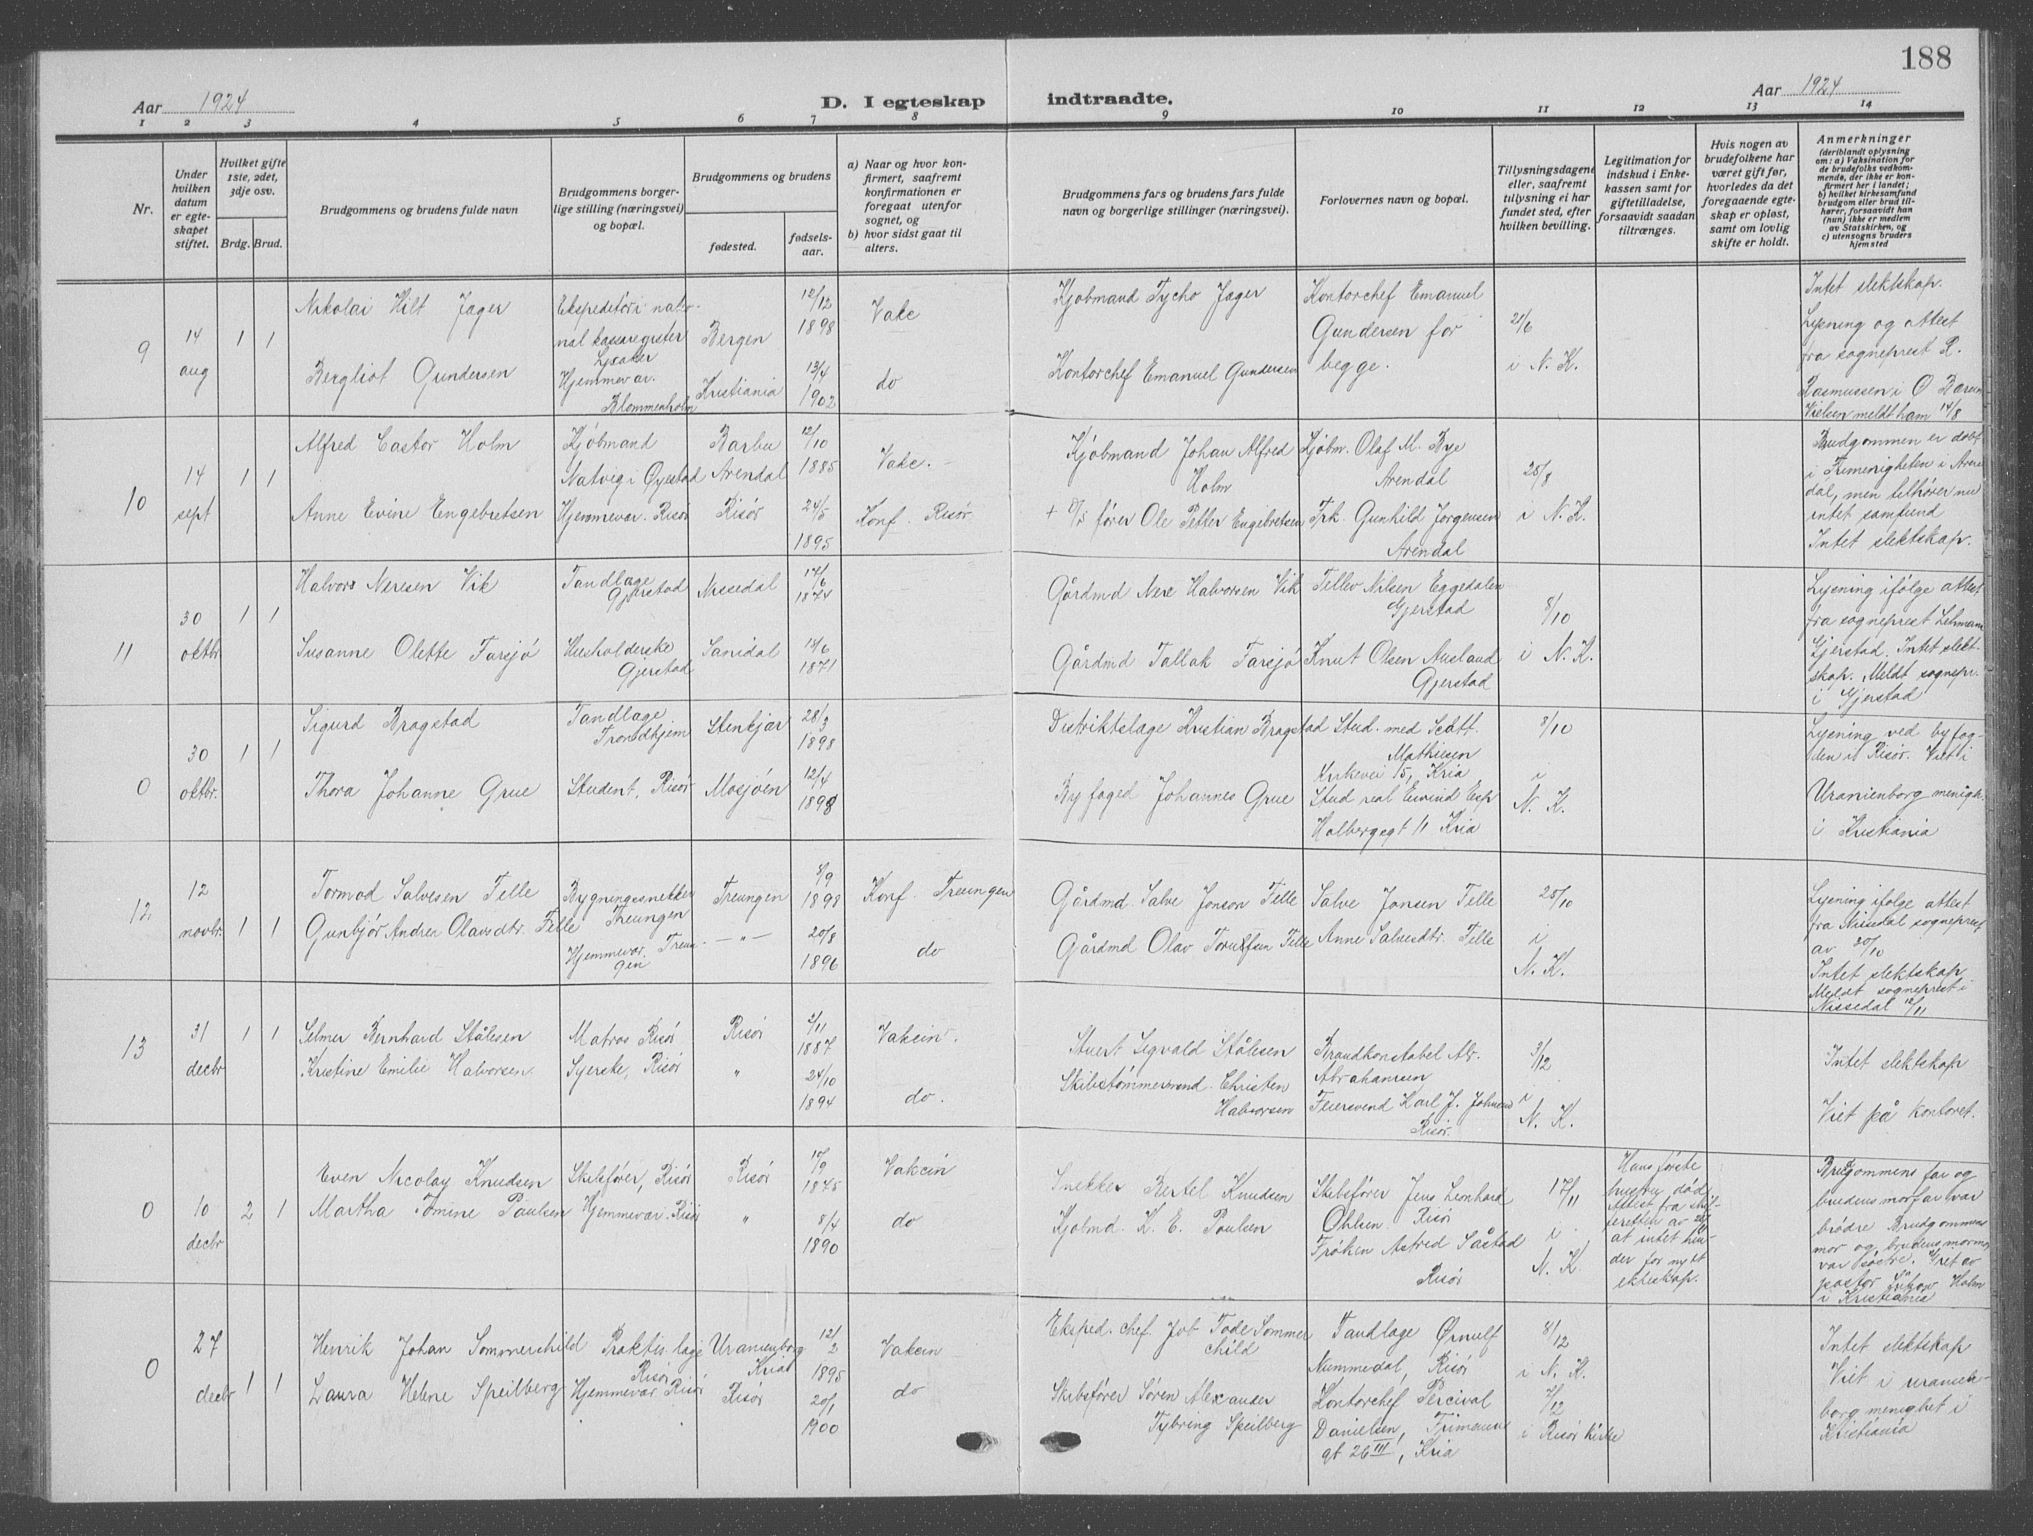 188
Aar 1924
D. I egteskap indtraadte.
Aar 1924
1 2 3 4 5 6 7 8 9 10 11 12 13 14
Nr.
Under hvilken datum er egteskapet stiftet.
Hvilket gifte 1ste, 2det, 3dje osv.
Brdg. Brud.
Brudgommens og brudens fulde navn
Brudgommens borgerlige stilling (næringsvei) og bopæl.
Brudgommens og brudens
fødested.
fødselsaar.
a) Naar og hvor konfirmert, saafremt konfirmationen er foregaat utenfor sognet, og
b) hvor sidst gaat til alters.
Brudgommens fars og brudens fars fulde navn og borgerlige stillinger (næringsvei).
Forlovernes navn og bopæl.
Tillysningsdagene eller, saafremt tillysning ei har fundet sted, efter hvilken bevilling.
Legitimation for indskud i Enkekassen samt for giftetilladelse, forsaavidt saadan tiltrænges.
Hvis nogen av brudefolkene har været gift før, hvorledes da det foregaaende egteskap er opløst, samt om lovlig skifte er holdt.
Anmerkninger
(deriblandt oplysning om: a) Vaksination for de brudefolks vedkommende, der ikke er konfirmert her i landet; b) hvilket kirkesamfund brudgom eller brud tilhører, forsaavidt han (hun) ikke er medlem av Statskirken, og c) utensogns bruders hjemsted
9
14 aug
1 1
Nikolai Hilt Jager
Ekspeditør i national kassaregister Lysaker
Bergen
12/12 1898
Vakc
Kjøbmand Tycho Jager
Kontorchef Emanuel Gundersen for begge.
21/6 i N. K.
Bergliot Gundersen
Hjemmevær. Blommenholm
Kristiania
13/4 1902
do
Kontorchef Emanuel Gundersen
Intet slektskap.
Lysning og attest
fra sogneprest R.
Rasmussen i Ø Bærum
Vielsen meldt ham 14/8
10
14 sept
1 1
Alfred Castor Holm
Kjøbmand Natvig i Øyestad
Barbu Arendal
12/10 1885
Vakc. –
Kjøbmand Johan Alfred Holm
Kjøbm. Olaf M. Bye Arendal
25/8 i N. K.
Anne Evine Engebretsen
Hjemmevær. Risør
Risør
24/5 1895
Konf. Risør
+ D/S fører Ole Petter Engebretsen
Frk. Gunhild Jørgensen Arendal
Brudgommen er døbt
i Frimenigheten i Arendal, men tilhører nu
intet samfund
Intet slektskap.
11
30 oktbr
1 1
Halvors Neresen Vik
Tandlæge Gjerstad
Nissedal
17/6 1874
Gårdmd Nere Halvorsen Vik
Tellev Nilsen Eggedalen Gjerstad
8/10 i N. K.
Susanne Olette Farsjø
Husholderske Gjerstad
Sanidal
14/6 1871
Gårdmd Tallak Farsjø
Knut Olsen Ausland Gjerstad
Lysning ifølge attest
fra sogneprest Lehmann
Gjerstad. Intet slektskap. Meldt sognepr.
i Gjerstad
0
30 oktbr.
1 1
Sigurd Bragstad
Tandlæge Trondhjem
Stenkjær
28/3 1898
Distriktslæge Kristian Bragstad
Stud. med Scatt. Mathiesen
Kirkevei 15, Kria
8/10 i N. K.
Thora Johanne Grue
Student, Risør
Mosjøen
12/4 1898
Byfoged Johannes Grue
Stud real Eivind Esp
Holbergsgt 11 Kria
Lysning ved byfogden i Risør. Viet i
Uranienborg menigh.
i Kristiania
12
12 novbr.
1 1
Tormod Salvesen Felle
Bygningssnekker Treungen
Treungen
8/9 1898
Konf. Treungen
Gårdmd. Salve Jonson Felle
Salve Jonsen Felle
25/10 i N. K.
Gunbjør Andrea Olavsdtr. Felle
Hjemmevær. Treungen
– " –
20/8 1896
do
Gårdmd Olav Torulfsen Felle
Anne Salvesdtr. Felle
Lysning ifølge attest
fra Nissedal sogneprest
av 30/10
Intet slektskap
Meldt sogneprest i
Nissedal 12/11
13
31 decbr
1 1
Selmer Bernhard Stålesen
Matros Risør
Risør
2/11 1887
Vakcin.
Stuert Sigvald Stålesen
Brandkonstabel Alr. Abrahamsen
3/12 i N. K.
Kristine Emilie Halvorsen
Syerske, Risør
"
24/10 1894
do.
Skibstømmermand. Christen Halvorsen
Feiersvend Karl J. Johnsen Risør.
Intet slektskap
Viet på kontoret.
0
10 decbr
2 1
Even Nicolay Knudsen
Skibsfører, Risør
Risør
17/9 1875
Vakcin
Snekker Bertel Knudsen
Skibsfører Jens Leonhard Ohlsen Risør
17/11 i N. K.
Martha Tomine Paulsen
Hjemmevær. Risør
"
8/4 1890
do
Kjøbmd. K. E. Poulsen
Frøken Astrid Såstad Risør
Hans første
hustru død
Attest fra skifteretten av
at intet hinder for nytt
ekteskap.
Brudgommens far og
brudens morfar var
brødre Brudgommens
mor og brudens mormor
var søstre. Viet av
pastor Holm
i Kristiania
0
27 decbr
1 1
Henrik Johan Sommerschild
Praktis. læge Risør
Uranienborg Kria
12/2 1895
Vakcin
Eksped. chef. Job Tode Sommerchild
Tandlæge Ørnulf Nummedal, Risør
8/12 i N. K.
Laura Helene Speilberg
Hjemmevær. Risør
Risør
20/1 1900
do
Skibsfører Søren Alexander Tybring Speilberg
Kontorchef Percival Danielsen, Frimanns gt 26 III, Kria
7/12 i Risør kirke
Intet slektskap
Viet i Uranienborg menighet i
Kristiania